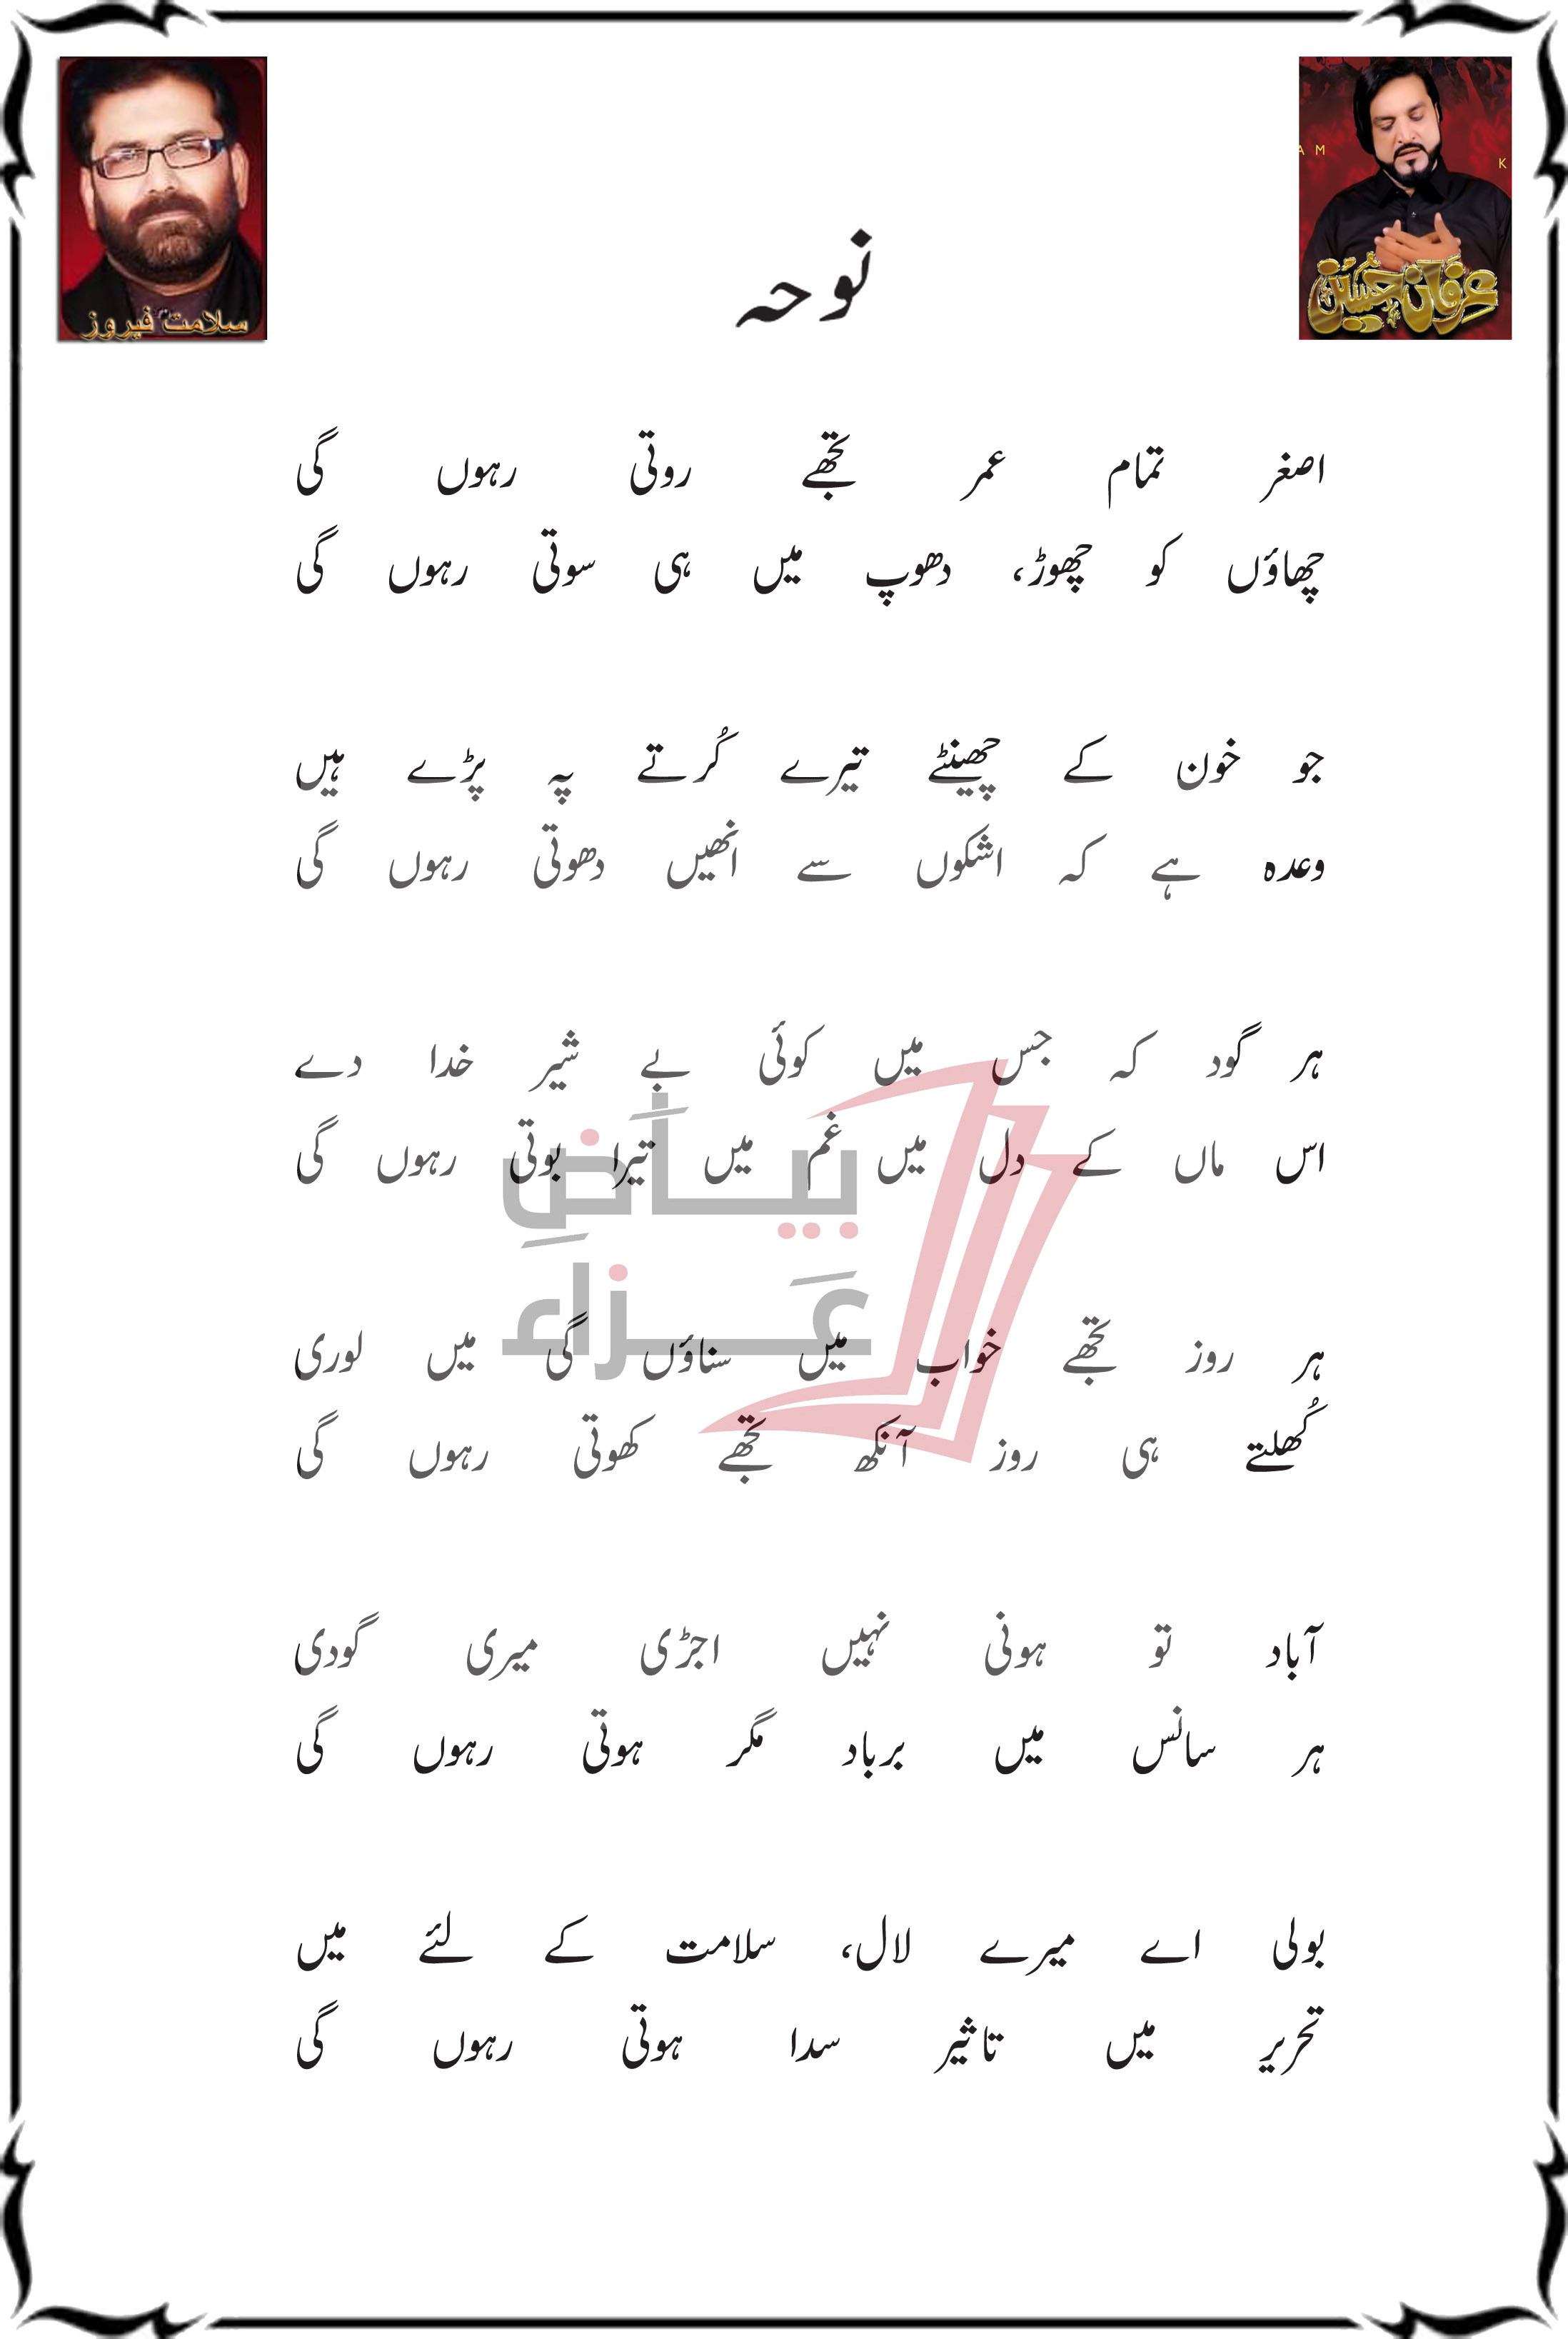 سلامت فیروز
A M
K
عرفان حسین
نوحہ
اصغر تمام عمر تجھے روتی رہوں گی
چھاؤں کو چھوڑ، دھوپ میں ہی سوتی رہوں گی
جو خون کے چھینٹے تیرے کُرتے پہ پڑے ہیں
وعدہ ہے کہ اشکوں سے انھیں دھوتی رہوں گی
ہر گود کہ جس میں کوئی بے شیر خدا دے
اس ماں کے دل میں غم میں تیرا بوتی رہوں گی
بیاضِ
عَزاء
ہر روز تجھے خواب میں سناؤں گی میں لوری
کُھلتے ہی روز آنکھ تجھے کھوتی رہوں گی
آباد تو ہونی نہیں اجڑی میری گودی
ہر سانس میں برباد مگر ہوتی رہوں گی
بولی اے میرے لال، سلامت کے لئے میں
تحریر میں تاثیر سدا ہوتی رہوں گی